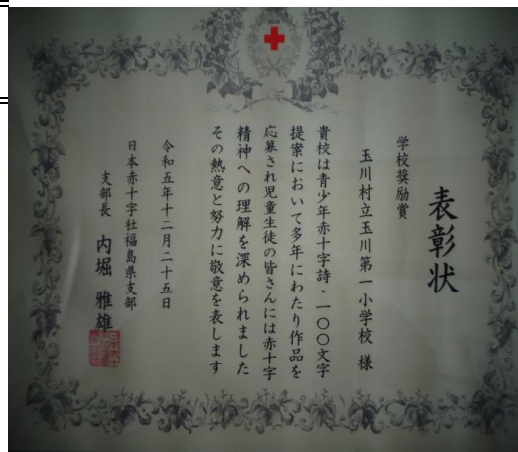 表彰状
学校奨励賞
玉川村立玉川第一小学校 様
貴校は青少年赤十字詩・一〇〇文字
提案において多年にわたり作品を
応募され児童生徒の皆さんには赤十字
精神への理解を深められました
その熱意と努力に敬意を表します
令和五年十二月二十五日
日本赤十字社福島県支部
支部長 内堀 雅雄